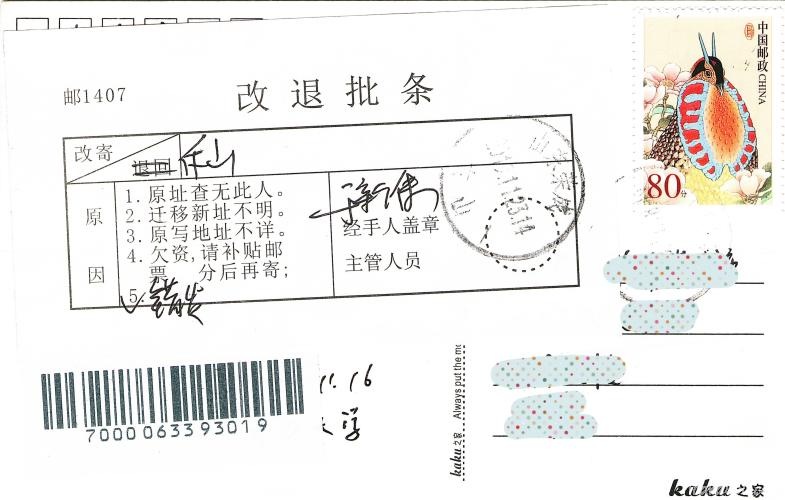 中国邮政 CHINA
80分
邮1407
改退批条
改寄
退回
乐山
原因
1. 原址查无此人。
2. 迁移新址不明。
3. 原写地址不详。
4. 欠资,请补贴邮
票 分后再寄;
5.
错发
经手人盖章
主管人员
11.16
大学
70000633 93019
kaku 之家 Always put the m
kaku 之家